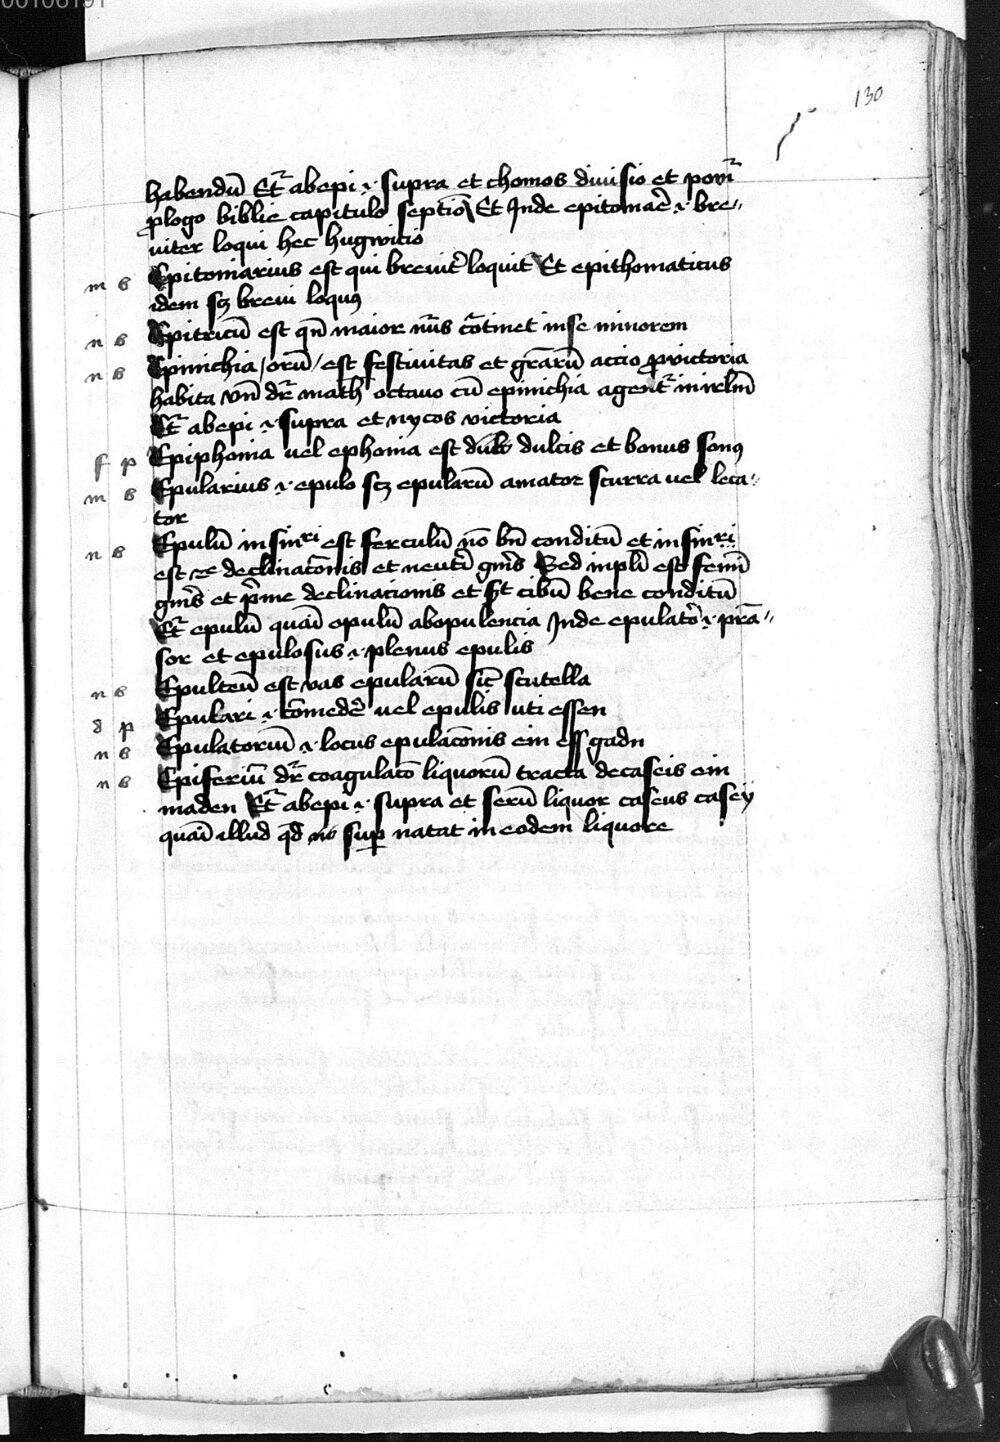 00106191
130
habendū Et̄ᷓ abepi .i. supra et chomos diuisio et ponit᷑
ꝓlogo biblie capitulo septiō Et Inde epitomaē .i. bre„
uiter loqui hec hugwicio
m b Epitomarius est qui breuit᷑ loquit᷑ Et epithomaticus
idem sꝫ breui loquꝰ
n b Epitricū est qn̄ maior nūs cōtinet in se minorem
n b Epinichia / orū / est festiuitas et gr̄arū accio ꝓ victoria
habita vn̄ dr᷑ math̄ octauo cū epinichia agent᷑ in irlm̄
Et᷑ abepi .i. supra et nycos victoria
f p Epiphonia uel ephonia est dulꝭ dulcis et bonus sonꝰ
m b Epularius .i. epulo scꝫ epularū amator scurra uel leca„
tor
n b Epulū in sinᵍʳⁱ est ferculū nō bn̄ conditū et in sinʳⁱ
est 2e declinac̄onis et neutī gn̄is Sed in pl̄i est femī
gn̄is et p̄me declinacionis et sꝫt cibū bene conditū
Et᷑ epulū quāi opulū abopulencia Inde epulatōr .i. prā„
sor et epulosus .i. plenus epulis
n b Epulteū est vas epularū sic̄ scutella
d p Epulari .i. cōmedē uel epulis uti essen
n b Epulatoriū .i. locus epulac̄onis ein ess gadn
n b Episeriū dr᷑ coagulac̄o liquorū tracta de caseis ein
maden Et᷑ abepi .i. supra et serū liquor caseus casey
quāi illud qd̄ sup̄ natat in eodem liquore